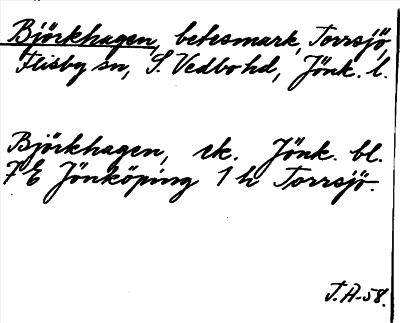 Björkhagen, betesmark, Torrsjö,
Flisby sn, S. Vedbo hd, Jönk. l.
Björkhagen, ek. Jönk. bl.
7 E Jönköping 1 h Torrsjö.
T.A-58.